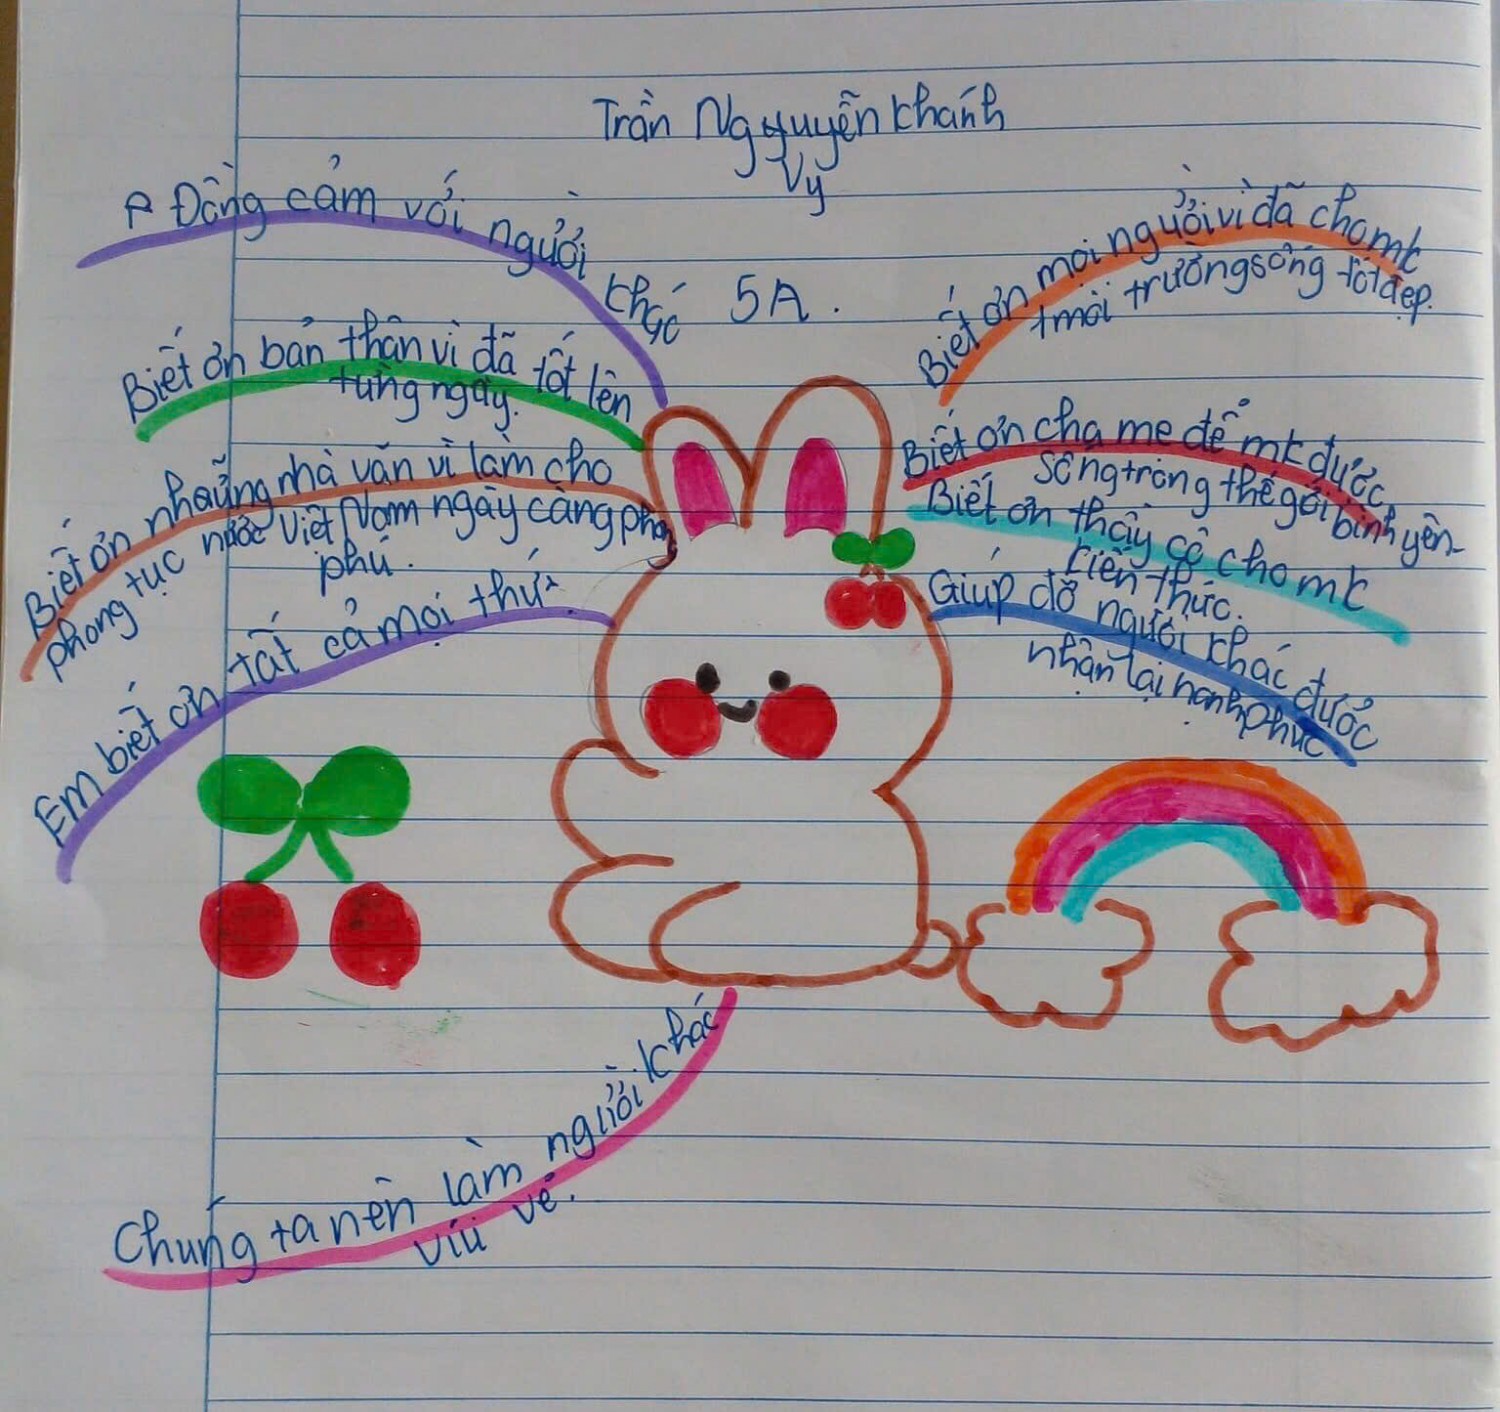 Trần Nguyễn Khánh
Vy
5A.
Đồng cảm với người khác
Biết ơn bản thân vì đã tốt lên
từng ngày.
Biết ơn những nhà văn vì làm cho
phong tục nước Việt Nam ngày càng phong
phú.
Em biết ơn tất cả mọi thứ
Biết ơn mọi người vì đã cho mk
1 môi trường sống tốt đẹp.
Biết ơn cha mẹ để mk được
sống trong thế gới bình yên
Biết ơn thầy cô cho mk
kiến thức.
Giúp đỡ người khác được
nhận lại hạnh phúc
Chúng ta nên làm người khác
vui vẻ.